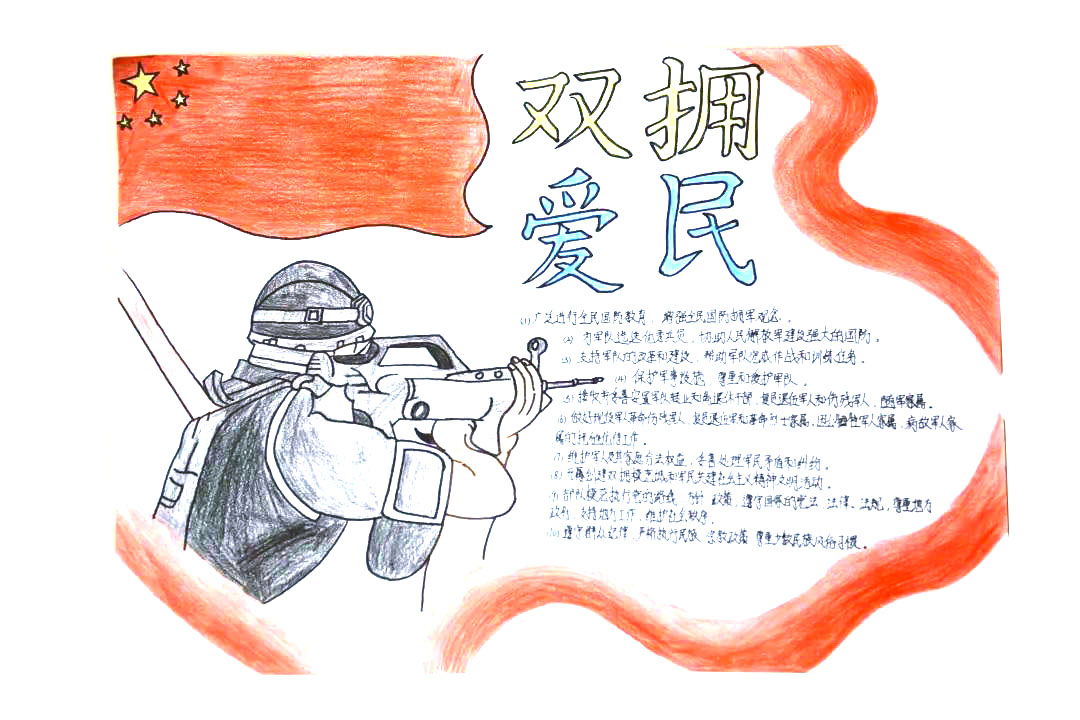 双拥
爱民
(1)广泛进行全民国防教育,增强全民国防拥军观念。
(2)为军队选送优秀兵员,协助人民解放军建设强大的国防。
(3)支持军队的改革和建设,帮助军队完成作战和训练任务。
(4)保护军事设施,尊重和爱护军队。
(5)接收并妥善安置军队转业和离退休干部,复员退伍军人和伤残军人,随军家属。
(6)做好现役军人革命伤残军人,复员退伍军和革命烈士家属,因公牺牲军人家属,病故军人家
属的抚恤优待工作。
(7)维护军人及其家属合法权益,妥善处理军民矛盾和纠纷。
(8)开展创建双拥模范城和军民共建社会主义精神文明活动。
(9)部队模范执行党的路线 方针 政策,遵守国家的宪法 法律、法规,尊重地方
政府,支持地方工作,维护社会秩序。
(10)遵守群众纪律,严格执行民族 宗教政策 尊重少数民族风俗习惯。